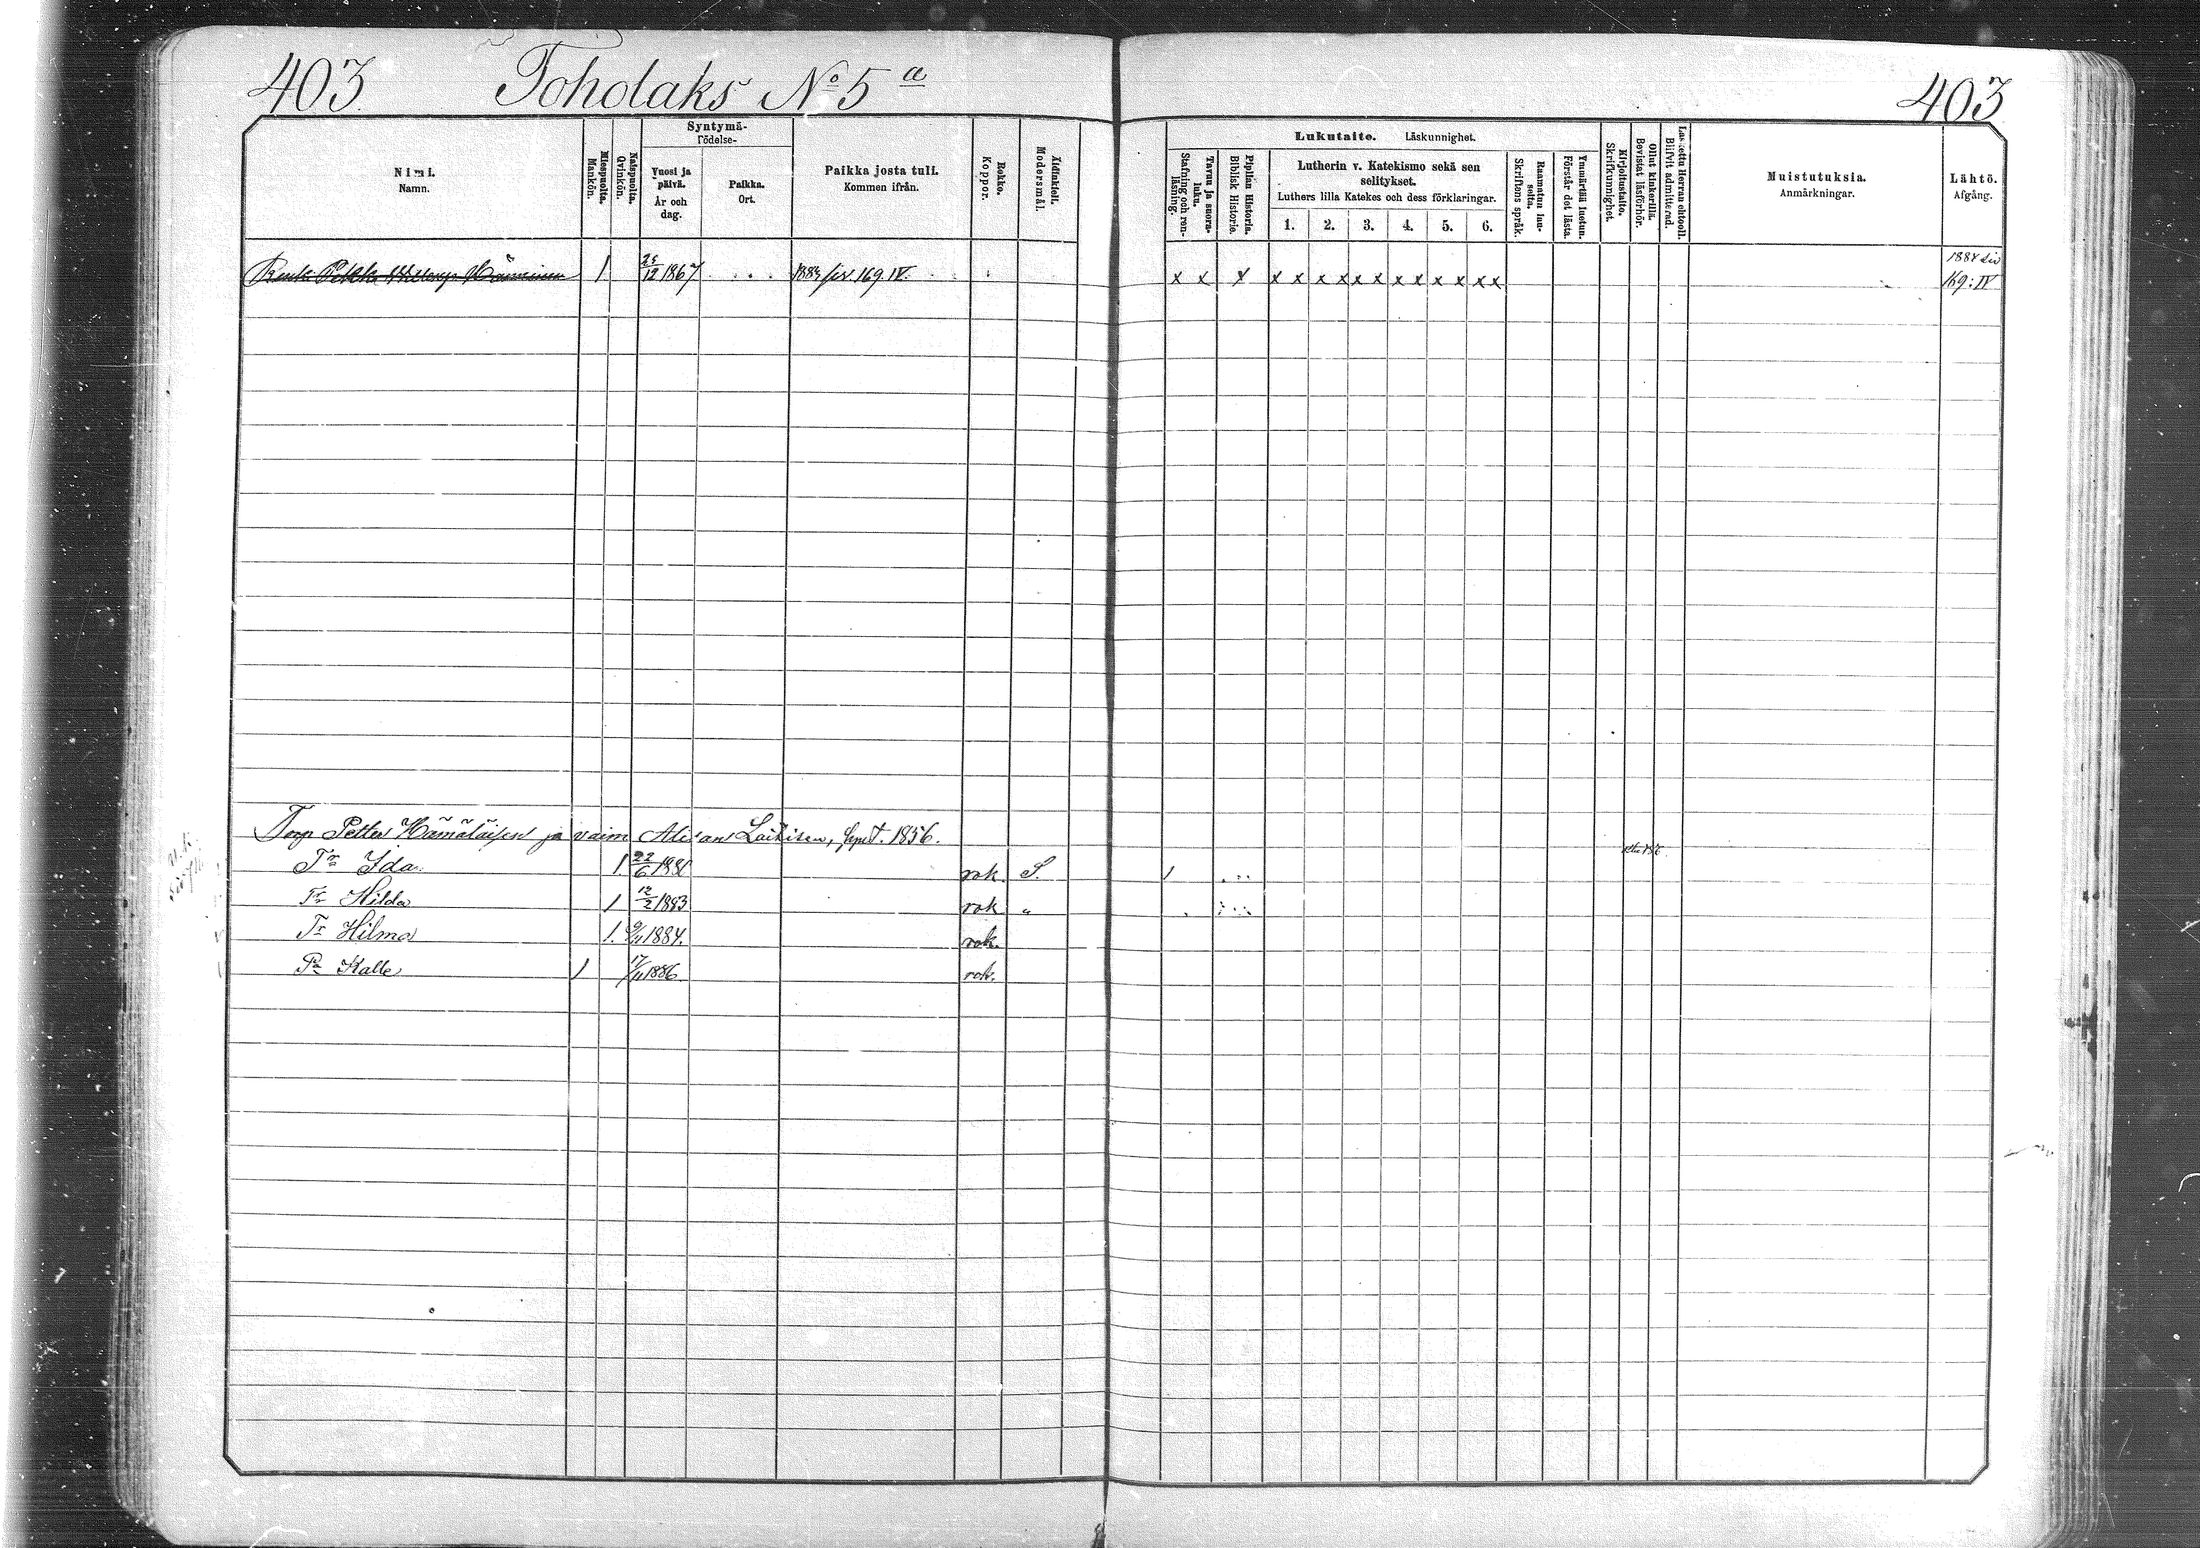 403 Toholaks No 5 a 403
Nimi. Namn.
Miespuolta. Mankön.
Naispuolta. Qvinkön.
Syntymä- Födelse-
Vuosi ja päivä. År och dag.
Paikka. Ort.
Paikka josta tuli. Kommen ifrån.
Rokko. Koppor.
Äidinkieli. Modersmål.
Lukutaito. Läskunnighet.
Tavuu ja suora-luku. Stafning och ren-läsning.
Piplian Historia. Biblisk Historie.
Lutherin v. Katekismo sekä sen selitykset.
Luthers lilla Katekes och dess förklaringar.
1. 2. 3. 4. 5. 6.
Raamatun lau-seita. Skriftens språk.
Ymmärtää luetun. Förstår det lästa.
Kirjoitustaito. Skrifkunnighet.
Ollut kinkerillä. Bevistat läsförhör.
Laskettu Herran ehtooll. Blifvit admitterad.
Muistutuksia. Anmärkningar.
Lähtö. Afgång.
Pekka Hänninen 1 25/12 1867 1883 siv. 169. IV. x x x x x x x x x x x x x x x 1884 siv 169: IV
Torp Petter Hämäläisen ja vaim. Laitisen, Sept. 1856.
Tr Ida. 1 22/6 1881 rok. S. 1
Tr Hilda 1 12/2 1883 rok "
Tr Hilma 1. 9/11 1884. rok.
Pa Kalle 1 17/11 1886 rok.